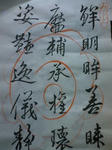 鮮明眸善睞
靨輔承權瓌
姿豔逸儀靜